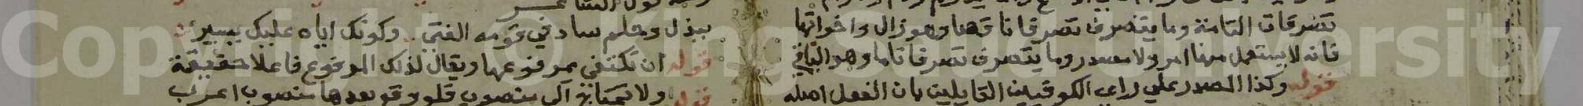 تصرفات التامة وما يتصرف تصرفا ناقصا وهو زال واخواتها
فانه لا يستعمل منها امر ولا مصدر وما يتصرف تصرفا تاما وهو الباقي
قوله وكذا المصدر على راى الكوفيين القايلين بان الفعل اصله
قول الشاعر
ببذل وحلم ساد في قومه الفتى وكونك اياه عليك يسير
قوله ان تكتفي بمرفوعها ويقال لذلك المرفوع فاعلا حقيقة
منصوب فلو وقع بعدها منصوب اعرب